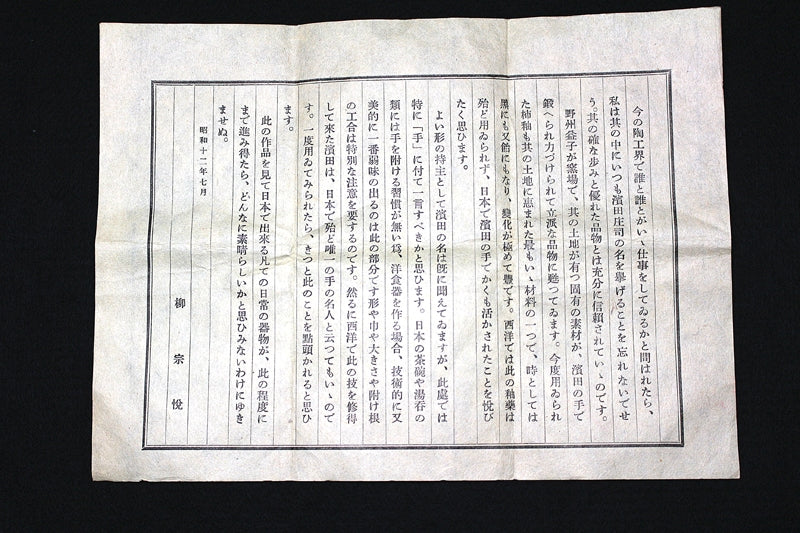 今の陶工界で誰と誰とがいゝ仕事をしてゐるかと問はれたら、
私は其の中にいつも濱田庄司の名を擧げることを忘れないでせ
う。其の確な歩みと優れた品物とは充分に信頼されていゝのです。
野州益子が窯場で、其の土地が有つ固有の素材が、濱田の手で
鍛へられ力づけられて立派な品物に甦つてゐます。今度用ゐられ
た柿釉も其の土地に恵まれた最もいゝ材料の一つで、時としては
黒にも又飴にもなり、變化が極めて豊です。西洋では此の釉藥は
殆ど用ゐられず、日本で濱田の手でかくも活かされたことを悦び
たく思ひます。
よい形の持主として濱田の名は既に聞えてゐますが、此處では
特に「手」に付て一言すべきかと思ひます。日本の茶碗や湯呑の
類には手を附ける習慣が無い爲、洋食器を作る場合、技術的に又
美的に一番弱味の出るのは此の部分です形や巾や大きさや附け根
の工合は特別な注意を要するのです。然るに西洋で此の技を修得
して來た濱田は、日本で殆ど唯一の手の名人と云つてもいゝので
す。一度用ゐてみられたら、きつと此のことを點頭かれると思ひ
ます。
此の作品を見て日本で出來る凡ての日常の器物が、此の程度に
まで進み得たら、どんなに素晴らしいかと思ひみないわけにゆき
ませぬ。
昭和十二年七月
柳宗悅